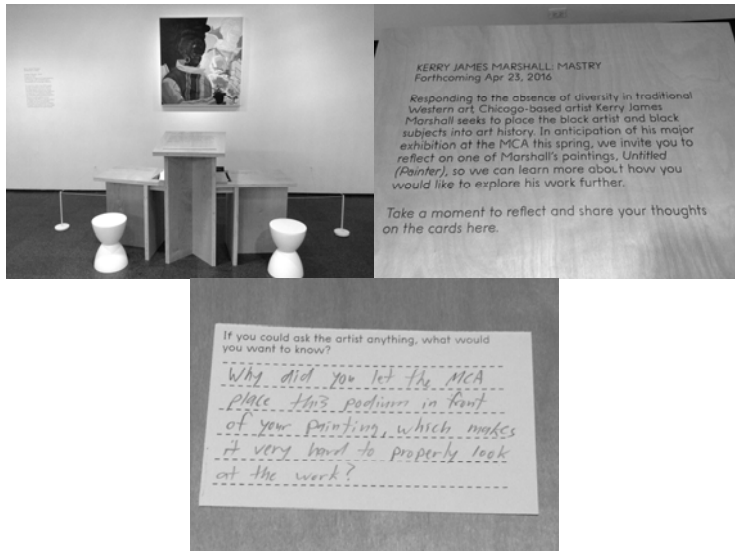 KERRY JAMES MARSHALL: MASTRY
Forthcoming Apr 23, 2016
Responding to the absence of diversity in traditional
Western art, Chicago-based artist Kerry James
Marshall seeks to place the black artist and black
subjects into art history. In anticipation of his major
exhibition at the MCA this spring, we invite you to
reflect on one of Marshall's paintings, Untitled
(Painter), so we can learn more about how you
would like to explore his work further.
Take a moment to reflect and share your thoughts
on the cards here.
If you could ask the artist anything, what would
you want to know?
Why did you let the MCA
place this podium in front
of your painting, which makes
it very hard to properly look
at the work?